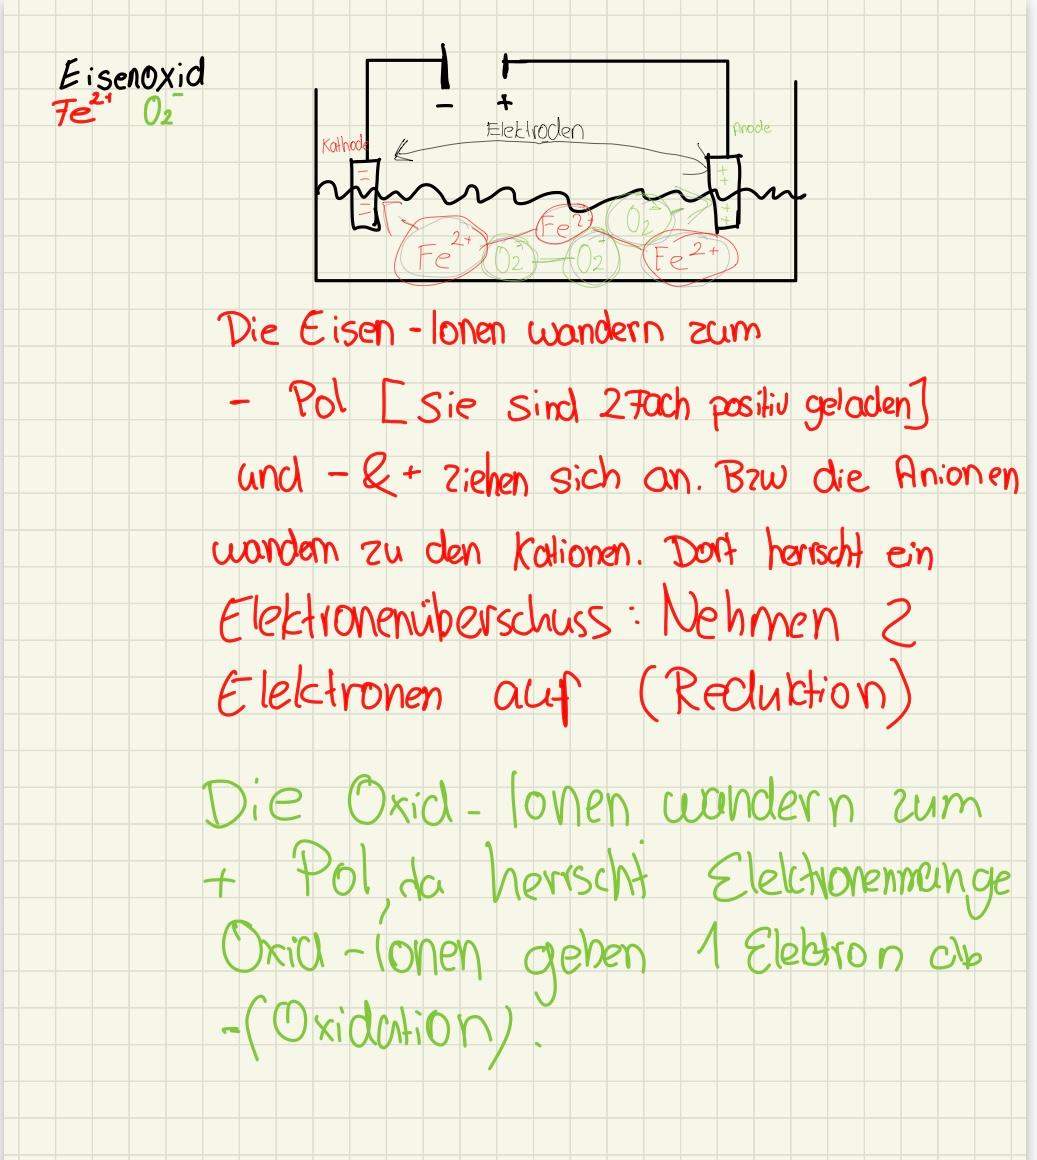 Eisenoxid
Fe²⁺ O₂⁻
− +
Elektroden
Kathode
Anode
Fe²⁺ O₂⁻ Fe²⁺ O₂⁻ O₂⁻ Fe²⁺
Die Eisen-Ionen wandern zum
- Pol [Sie sind 2Fach positiv geladen]
und - & + ziehen sich an. Bzw die Anionen
wandern zu den Kationen. Dort herrscht ein
Elektronenüberschuss: Nehmen 2
Elektronen auf (Reduktion)
Die Oxid-Ionen wandern zum
+ Pol, da herrscht Elektronenmange
Oxid-ionen geben 1 Elektron ab
-(Oxidation).